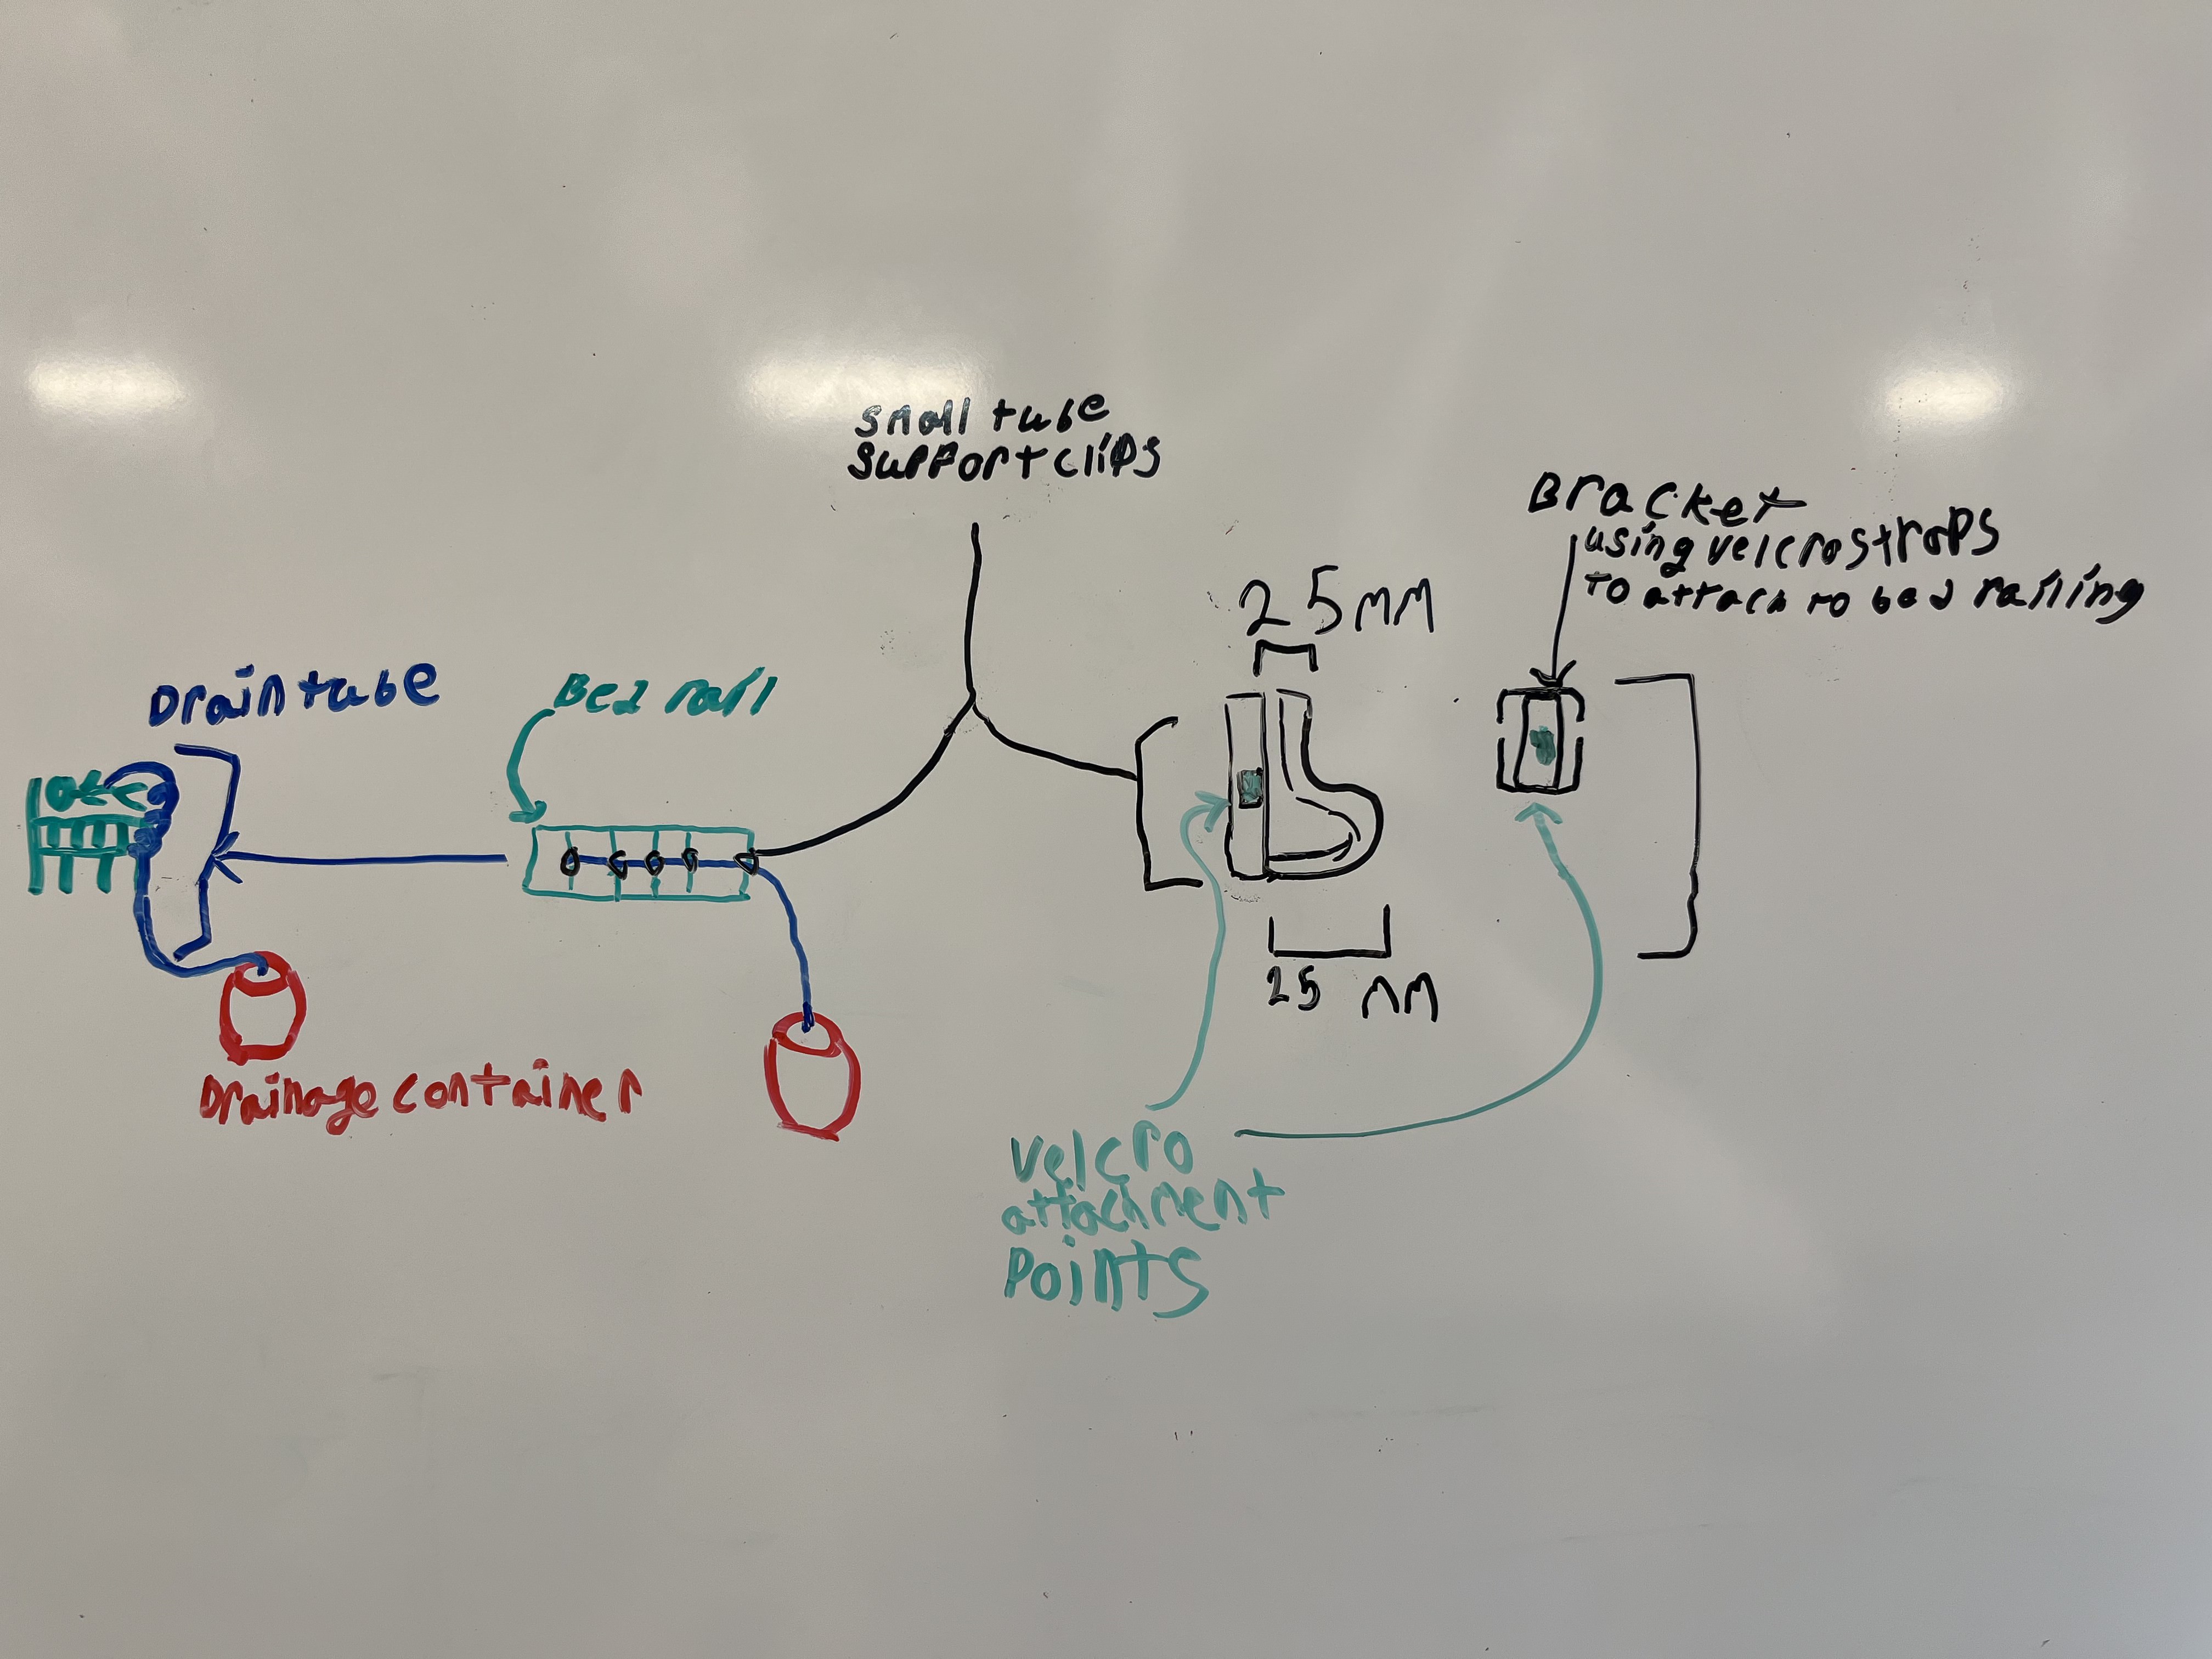 small tube
support clips
Bracket
using velcro straps
to attach to bed railing
25 MM
Drain tube
Bed rail
25 MM
Drainage container
Velcro
attachment
Points